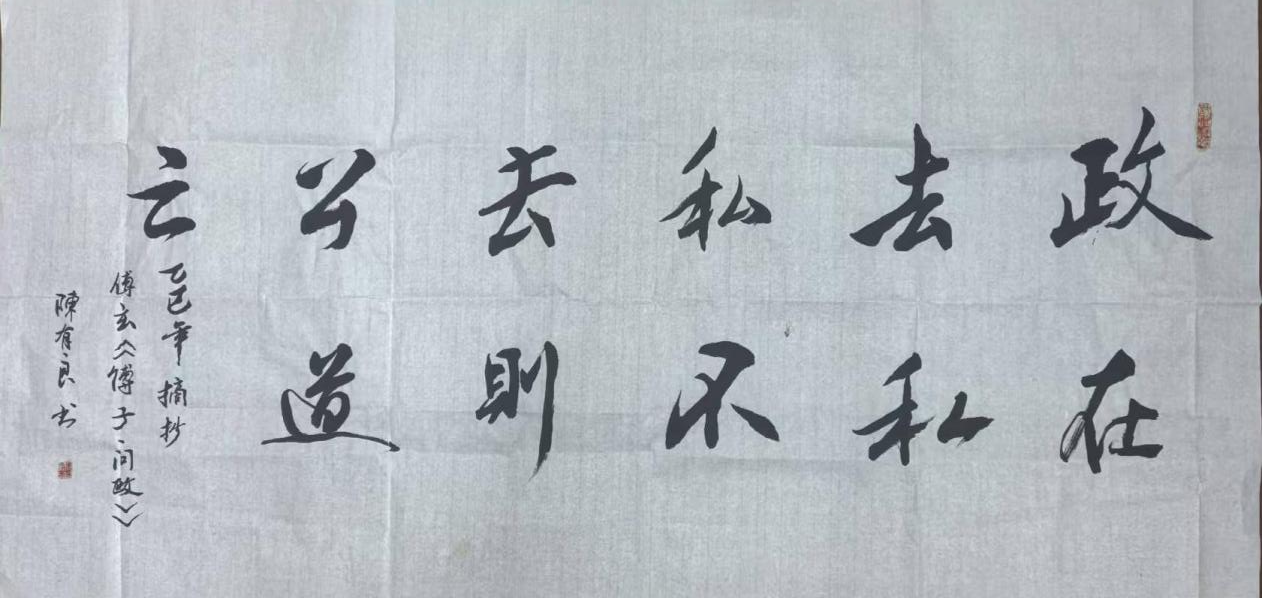 政在
去私
私不
去則
公道
亡
乙巳年摘抄
傅玄《傅子·问政》
陳有良书